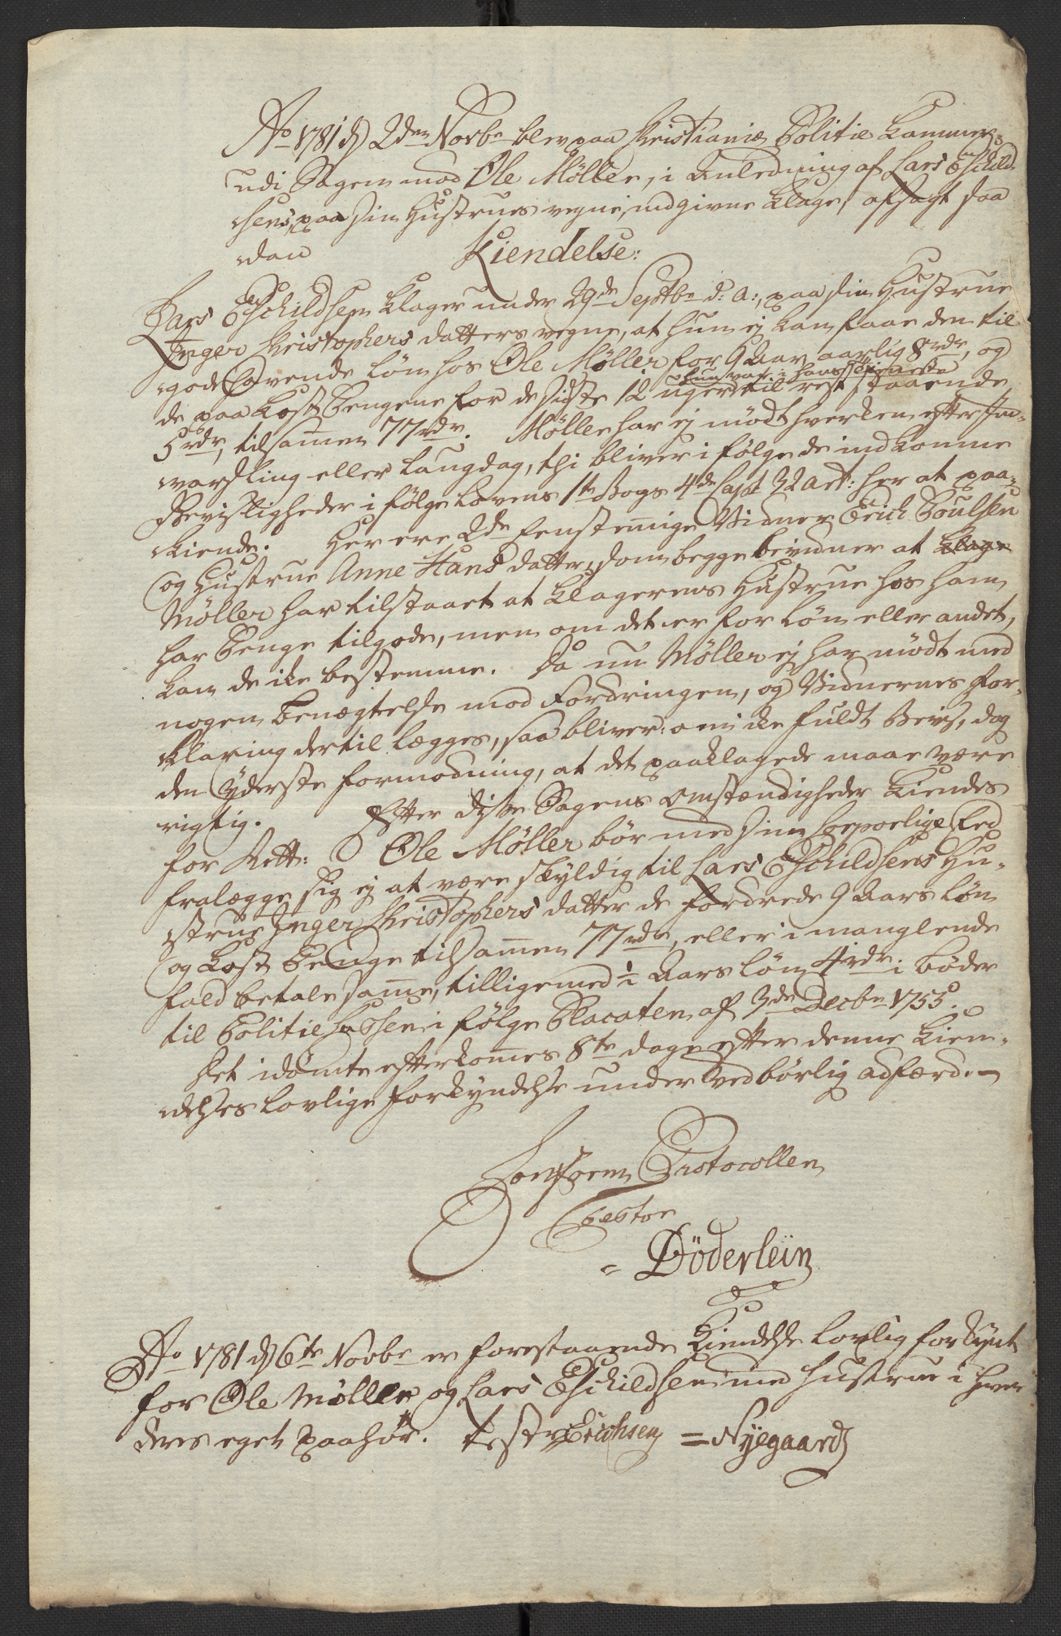 Ao 1781 d 2den Novbr blev paa Christianiæ Politie Kammer
udi Sagen mod Ole Møller, i Anledning af Lars Eschild-
sens, paa sin Hustrues vegne, indgivne Klage, afsagt saa
dan Kiendelse:
Lars Eschildsen klager under 29de Septbr d: a:, paa sin Hustrue
Inger Christophers datters vegne, at hun ej kan faae den til
gode havende Løn hos Ole Møller for 9 Aar aarlig 8 rdr, og
hun var i hans tieneste
de paa Kost Penge for de sidste 12 uger til rest staaende
5 rdr, tilsammen 77 rdr. Møller har ej mødt hverken efter Ind-
varsling eller Laugdag, thi bliver i følge de indkomne
Bevisligheder i følge Lovens 1te Bogs 4de Capt 32 Art: her at paa-
kiende. Her ere 2de Eenstemmige Vidner Erich Poulsen
og Hustrue Anne Hans datter, som begge bevidner at Klage
Møller har tilstaaet at Klagerens Hustrue hos ham
har Penge tilgode, men om det er for Løn eller andet,
kan de ike bestemme. Da nu Møller ej har mødt med
nogen Benægtelse mod Fordringen, og Vidnernes For-
klaring dertil lægges, saa bliver, om ike fuldt Beviis, dog
den Yderste formodning, at det paaklagede maae være
rigtig. Efter disse Sagens Omstændigheder kiendes
for Rett: Ole Møller bør med sin Corporlige Eed
fralægge sig ej at være skyldig til Lars Eschildsens Hu-
strue Inger Christophers datter de fordrede 9 Aars Løn
og Kost Penge tilsammen 77 rdr, eller i manglende
fald betale samme, tilligemed ½ Aars Løn 4 rdr i bøder
til Politie Cassen i følge Placaten af 3de Decbr 1755.
Det idømte efterkommes 8te dage efter denne Kien-
delses lovlige Forkyndelse under vedbørlig adfærd.
Conform Protocollen
Testor
Döderlein
Ao 1781 d 6te Novbr er forestaaende Kiendelse lovlig forkyndt
for Ole Møller og Lars Eschildsen med Hustrue i hver
deres eget paahør. test Erichsen Nyegaard